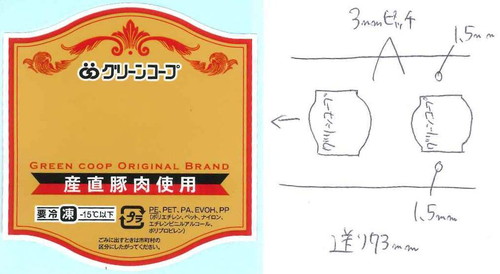 グリーンコープ
GREEN COOP ORIGINAL BRAND
産直豚肉使用
要冷 凍 -15℃以下
プラ
PE, PET, PA, EVOH, PP
(ポリエチレン、ペット、ナイロン、
エチレンビニルアルコール、
ポリプロピレン)
ごみに出すときは市町村の
区分にしたがってください。
3mmピッチ
1.5mm
1.5mm
送り73mm